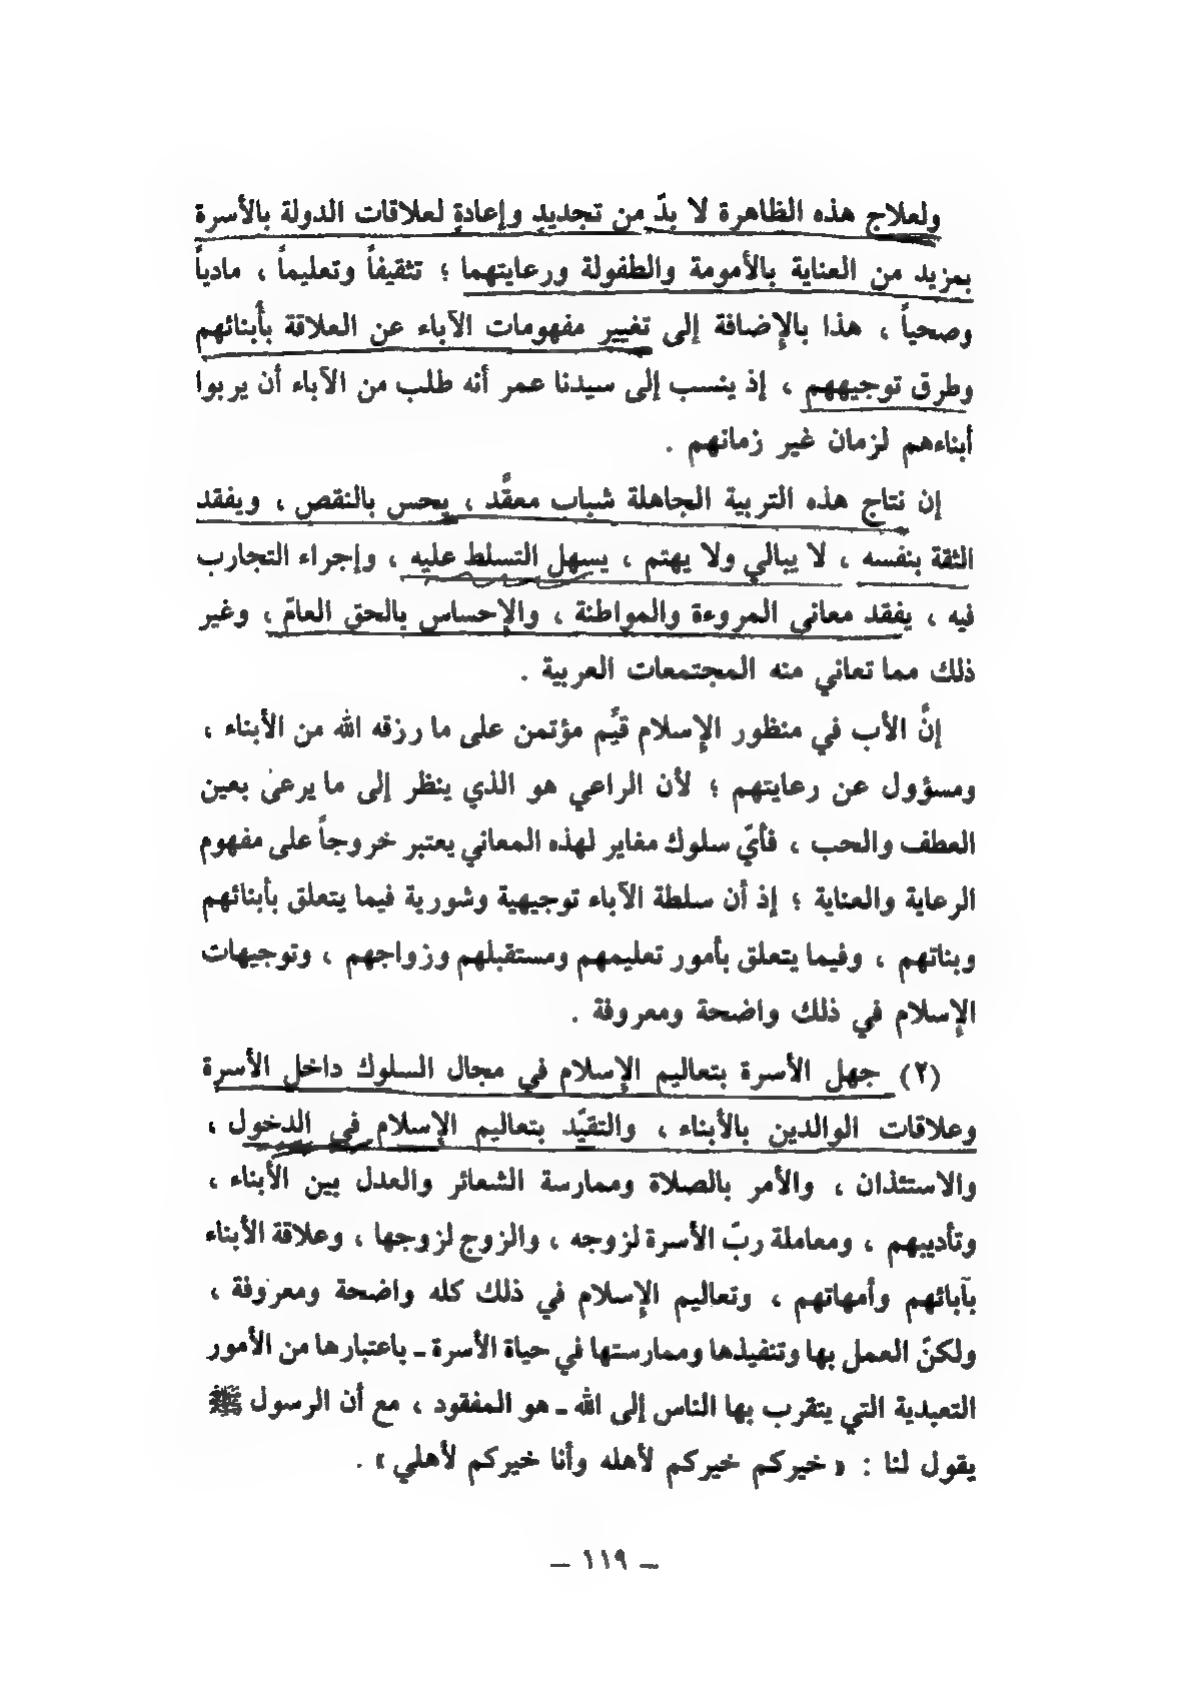 ولعلاج هذه الظاهرة لا بدّ من تجديدٍ وإعادةٍ لعلاقات الدولة بالأسرة
بمزيد من العناية بالأمومة والطفولة ورعايتهما ؛ تثقيفاً وتعليماً ، مادياً
وصحياً ، هذا بالإضافة إلى تغيير مفهومات الآباء عن العلاقة بأبنائهم
وطرق توجيههم ، إذ ينسب إلى سيدنا عمر أنه طلب من الآباء أن يربوا
أبناءهم لزمان غير زمانهم .
إن نتاج هذه التربية الجاهلة شباب معقَّد ، يحس بالنقص ، ويفقد
الثقة بنفسه ، لا يبالي ولا يهتم ، يسهل التسلط عليه ، وإجراء التجارب
فيه ، يفقد معاني المروءة والمواطنة ، والإحساس بالحق العامّ ، وغير
ذلك مما تعاني منه المجتمعات العربية .
إنَّ الأب في منظور الإسلام قيِّم مؤتمن على ما رزقه الله من الأبناء ،
ومسؤول عن رعايتهم ؛ لأن الراعي هو الذي ينظر إلى ما يرعىٰ بعين
العطف والحب ، فأيّ سلوك مغاير لهذه المعاني يعتبر خروجاً على مفهوم
الرعاية والعناية ؛ إذ أن سلطة الآباء توجيهية وشورية فيما يتعلق بأبنائهم
وبناتهم ، وفيما يتعلق بأمور تعليمهم ومستقبلهم وزواجهم ، وتوجيهات
الإسلام في ذلك واضحة ومعروفة .
(٢) جهل الأسرة بتعاليم الإسلام في مجال السلوك داخل الأسرة
وعلاقات الوالدين بالأبناء ، والتقيّد بتعاليم الإسلام في الدخول ،
والاستئذان ، والأمر بالصلاة وممارسة الشعائر والعدل بين الأبناء ،
وتأديبهم ، ومعاملة ربّ الأسرة لزوجه ، والزوج لزوجها ، وعلاقة الأبناء
بآبائهم وأمهاتهم ، وتعاليم الإسلام في ذلك كله واضحة ومعروفة ،
ولكنّ العمل بها وتنفيذها وممارستها في حياة الأسرة ـ باعتبارها من الأمور
التعبدية التي يتقرب بها الناس إلى الله ـ هو المفقود ، مع أن الرسول ﷺ
يقول لنا : « خيركم خيركم لأهله وأنا خيركم لأهلي » .
ـ ١١٩ ـ